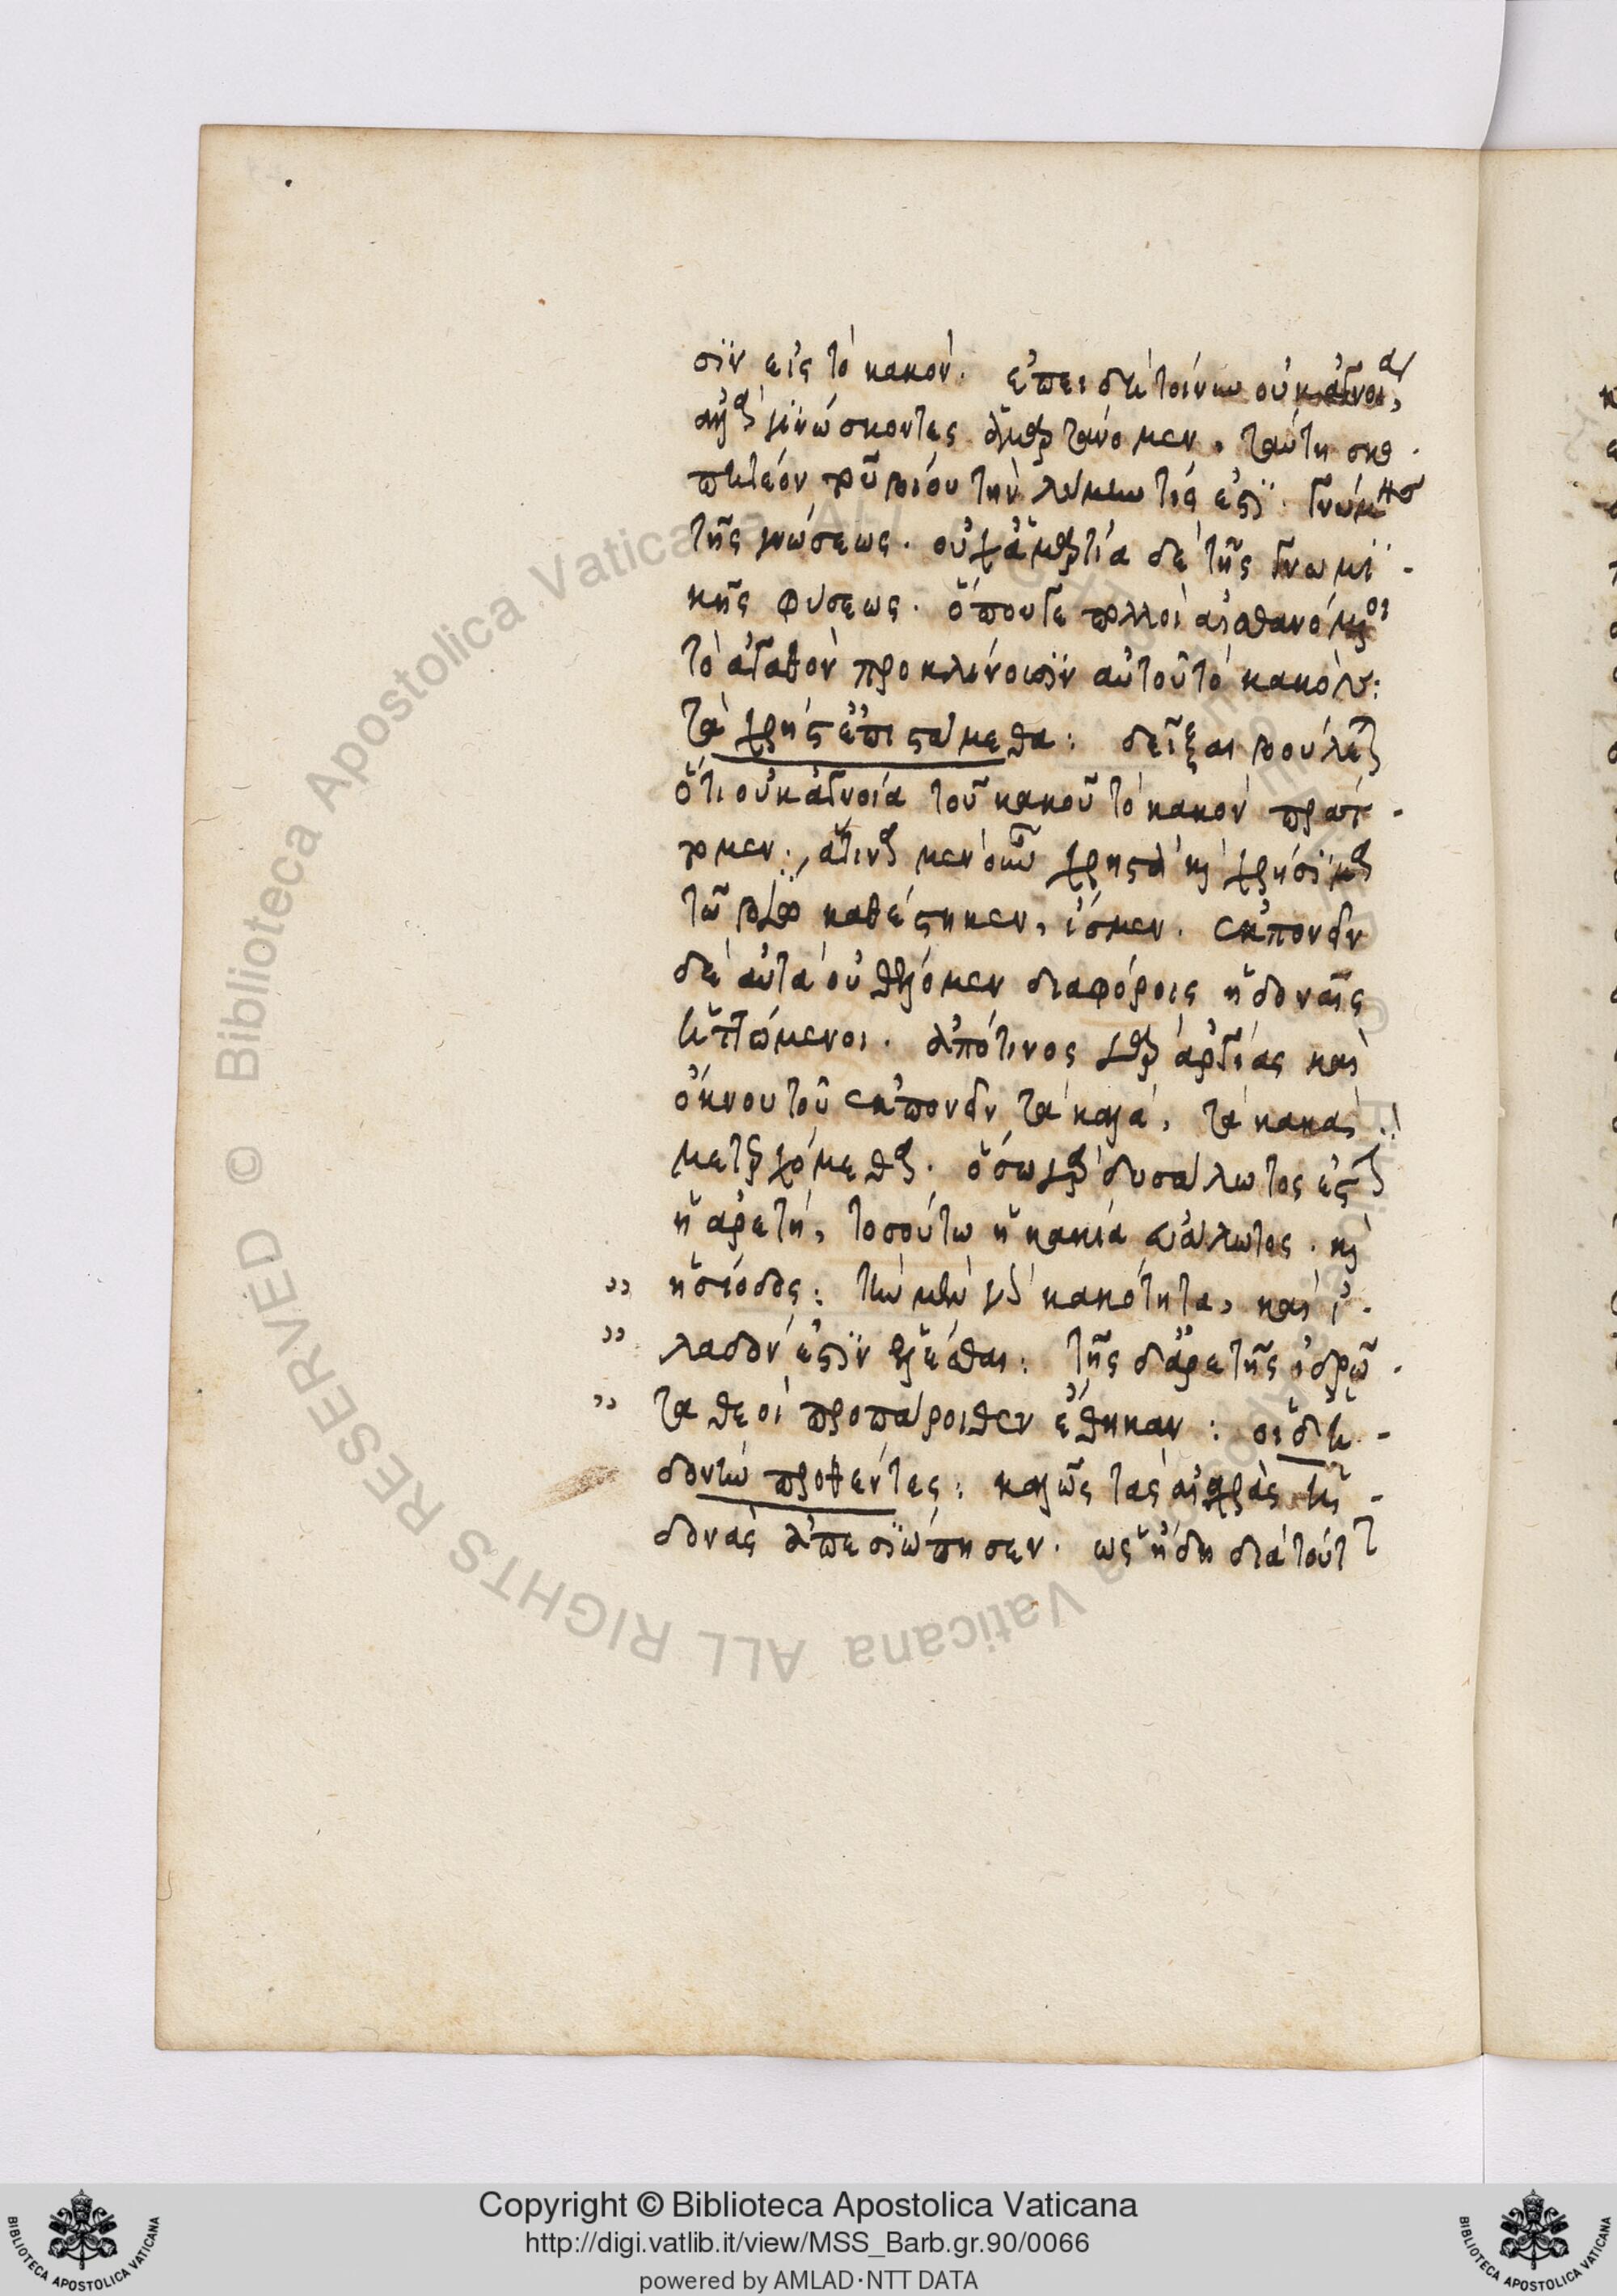 σϊν εἰς τὸ κακόν. ἐπειδὴ τοίνυν οὐκ ἀγνοίᾳ,
ἀλλὰ γϊνώσκοντες ἁμαρτάνομεν, ταύτη σκο-
πητέον τοῦ βίου τὴν λύμην τίς ἐστϊ. γνώμησ
τῆς γνώσεως. οὐχ ἁμαρτία δὲ τῆς γνωμϊ-
κῆς φύσεως. ὅπουγε πολλοὶ αἰσθανόμενοι
τὸ ἀγαθὸν προκλίνουσϊν αὐτοῦ τὸ κακόν:
τὰ χρήστ' ἐπιστάμεθα: δεῖξαι βούλεται
ὅτι οὐκ ἀγνοία τοῦ κακοῦ τὸ κακὸν πράτ-
τομεν. ἅτινα μὲν οὖν χρηστὰ καὶ χρήσϊμα
τῶ βίω καθέστηκεν, ἴσμεν. ἐκπονεῖν
δὲ αὐτὰ οὐ θέλομεν διαφόροις ἡδοναῖς
ἡττώμενοι. ἀπό τινος γὰρ ἀργίας καὶ
ὄκνου τοῦ ἐκπονεῖν τὰ καλά, τὰ κακὰ
μετερχόμεθα. ὅσω γὰρ δυσάλωτός ἐστιν
ἡ ἀρετή, τοσούτω ἡ κακία εὐάλωτος. καὶ
" ἡσίοδος: τὴν μὲν γὰρ κακότητα, καὶ ἰ-
" λαδόν ἐστϊν ἑλέσθαι: τῆς δ' ἀρετῆς ἱδρῶ-
" τα θεοὶ προπάροιθεν ἔθηκαν: οἱ δ' ἡ-
δονὴν προθέντες: καλῶς τὰς αἰσχρὰς ἡ-
δονὰς ἀπεσϊώπησεν. ὡς ἤδη διὰ τούτ
Copyright © Biblioteca Apostolica Vaticana
http://digi.vatlib.it/view/MSS_Barb.gr.90/0066
powered by AMLAD·NTT DATA